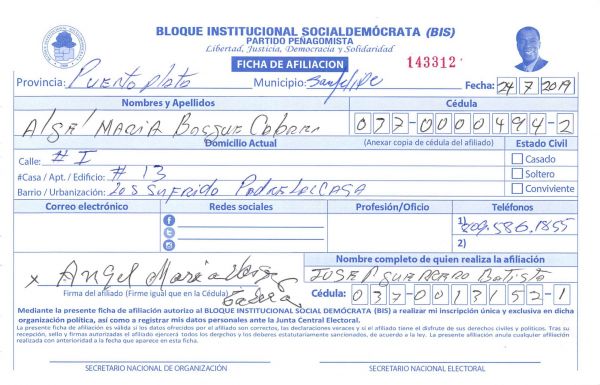 BLOQUE INSTITUCIONAL SOCIALDEMÓCRATA (BIS)
PARTIDO PEÑAGOMISTA
Libertad, Justicia, Democracia y Solidaridad
FICHA DE AFILIACION
143312
Provincia: Puerto Plata Municipio: San Felipe Fecha: 24/7/2019
Nombres y Apellidos Cédula
Maria 037-0000494-2
Domicilio Actual (Anexar copia de cédula del afiliado) Estado Civil
Calle: # I
Casado
#Casa / Apt. / Edificio: # 13
Soltero
Barrio / Urbanización: Los Sufrido
Conviviente
Correo electrónico Redes sociales Profesión/Oficio Teléfonos
1) 809.586.1855
2)
Nombre completo de quien realiza la afiliación
x Angel Maria
Jose Guerrero Batista
Firma del afiliado (Firme igual que en la Cédula)
Cédula: 037-0013152-1
Mediante la presente ficha de afiliación autorizo al BLOQUE INSTITUCIONAL SOCIAL DEMÓCRATA (BIS) a realizar mi inscripción única y exclusiva en dicha
organización política, así como a registrar mis datos personales ante la Junta Central Electoral.
La presente ficha de afiliación es válida si los datos ofrecidos por el afiliado son correctos, las declaraciones veraces y si el afiliado tiene el disfrute de sus derechos civiles y políticos. Tras su
recepción, sello y firmas autorizadas el afiliado ejercerá todos los derechos y los deberes estatutariamente sancionados, de acuerdo a la ley. La presente afiliación anula cualquier afiliación
realizada con anterioridad a la fecha que aparece en esta ficha.
SECRETARIO NACIONAL DE ORGANIZACIÓN SECRETARIO NACIONAL ELECTORAL